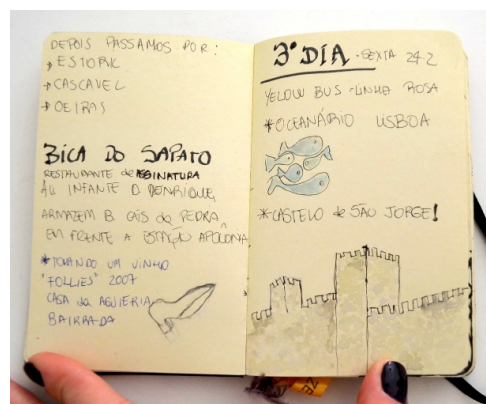 DEPOIS PASSAMOS POR:
→ ESTORIL
→ CASCAVEL
→ OEIRAS
BICA DO SAPATO
RESTAURANTE de ASSINATURA
AV. INFANTE D. HENRIQUE,
ARMAZÉM B CAIS da PEDRA
EM FRENTE A ESTAÇÃO APOLÔNIA
*TOMANDO UM VINHO
"FOLLIES" 2007
CASA da AGUIEIRA
BAIRRADA
3º DIA - SEXTA 24.2
YELOW BUS - LINHA ROSA
*OCEANÁRIO LISBOA
*CASTELO de SÃO JORGE!